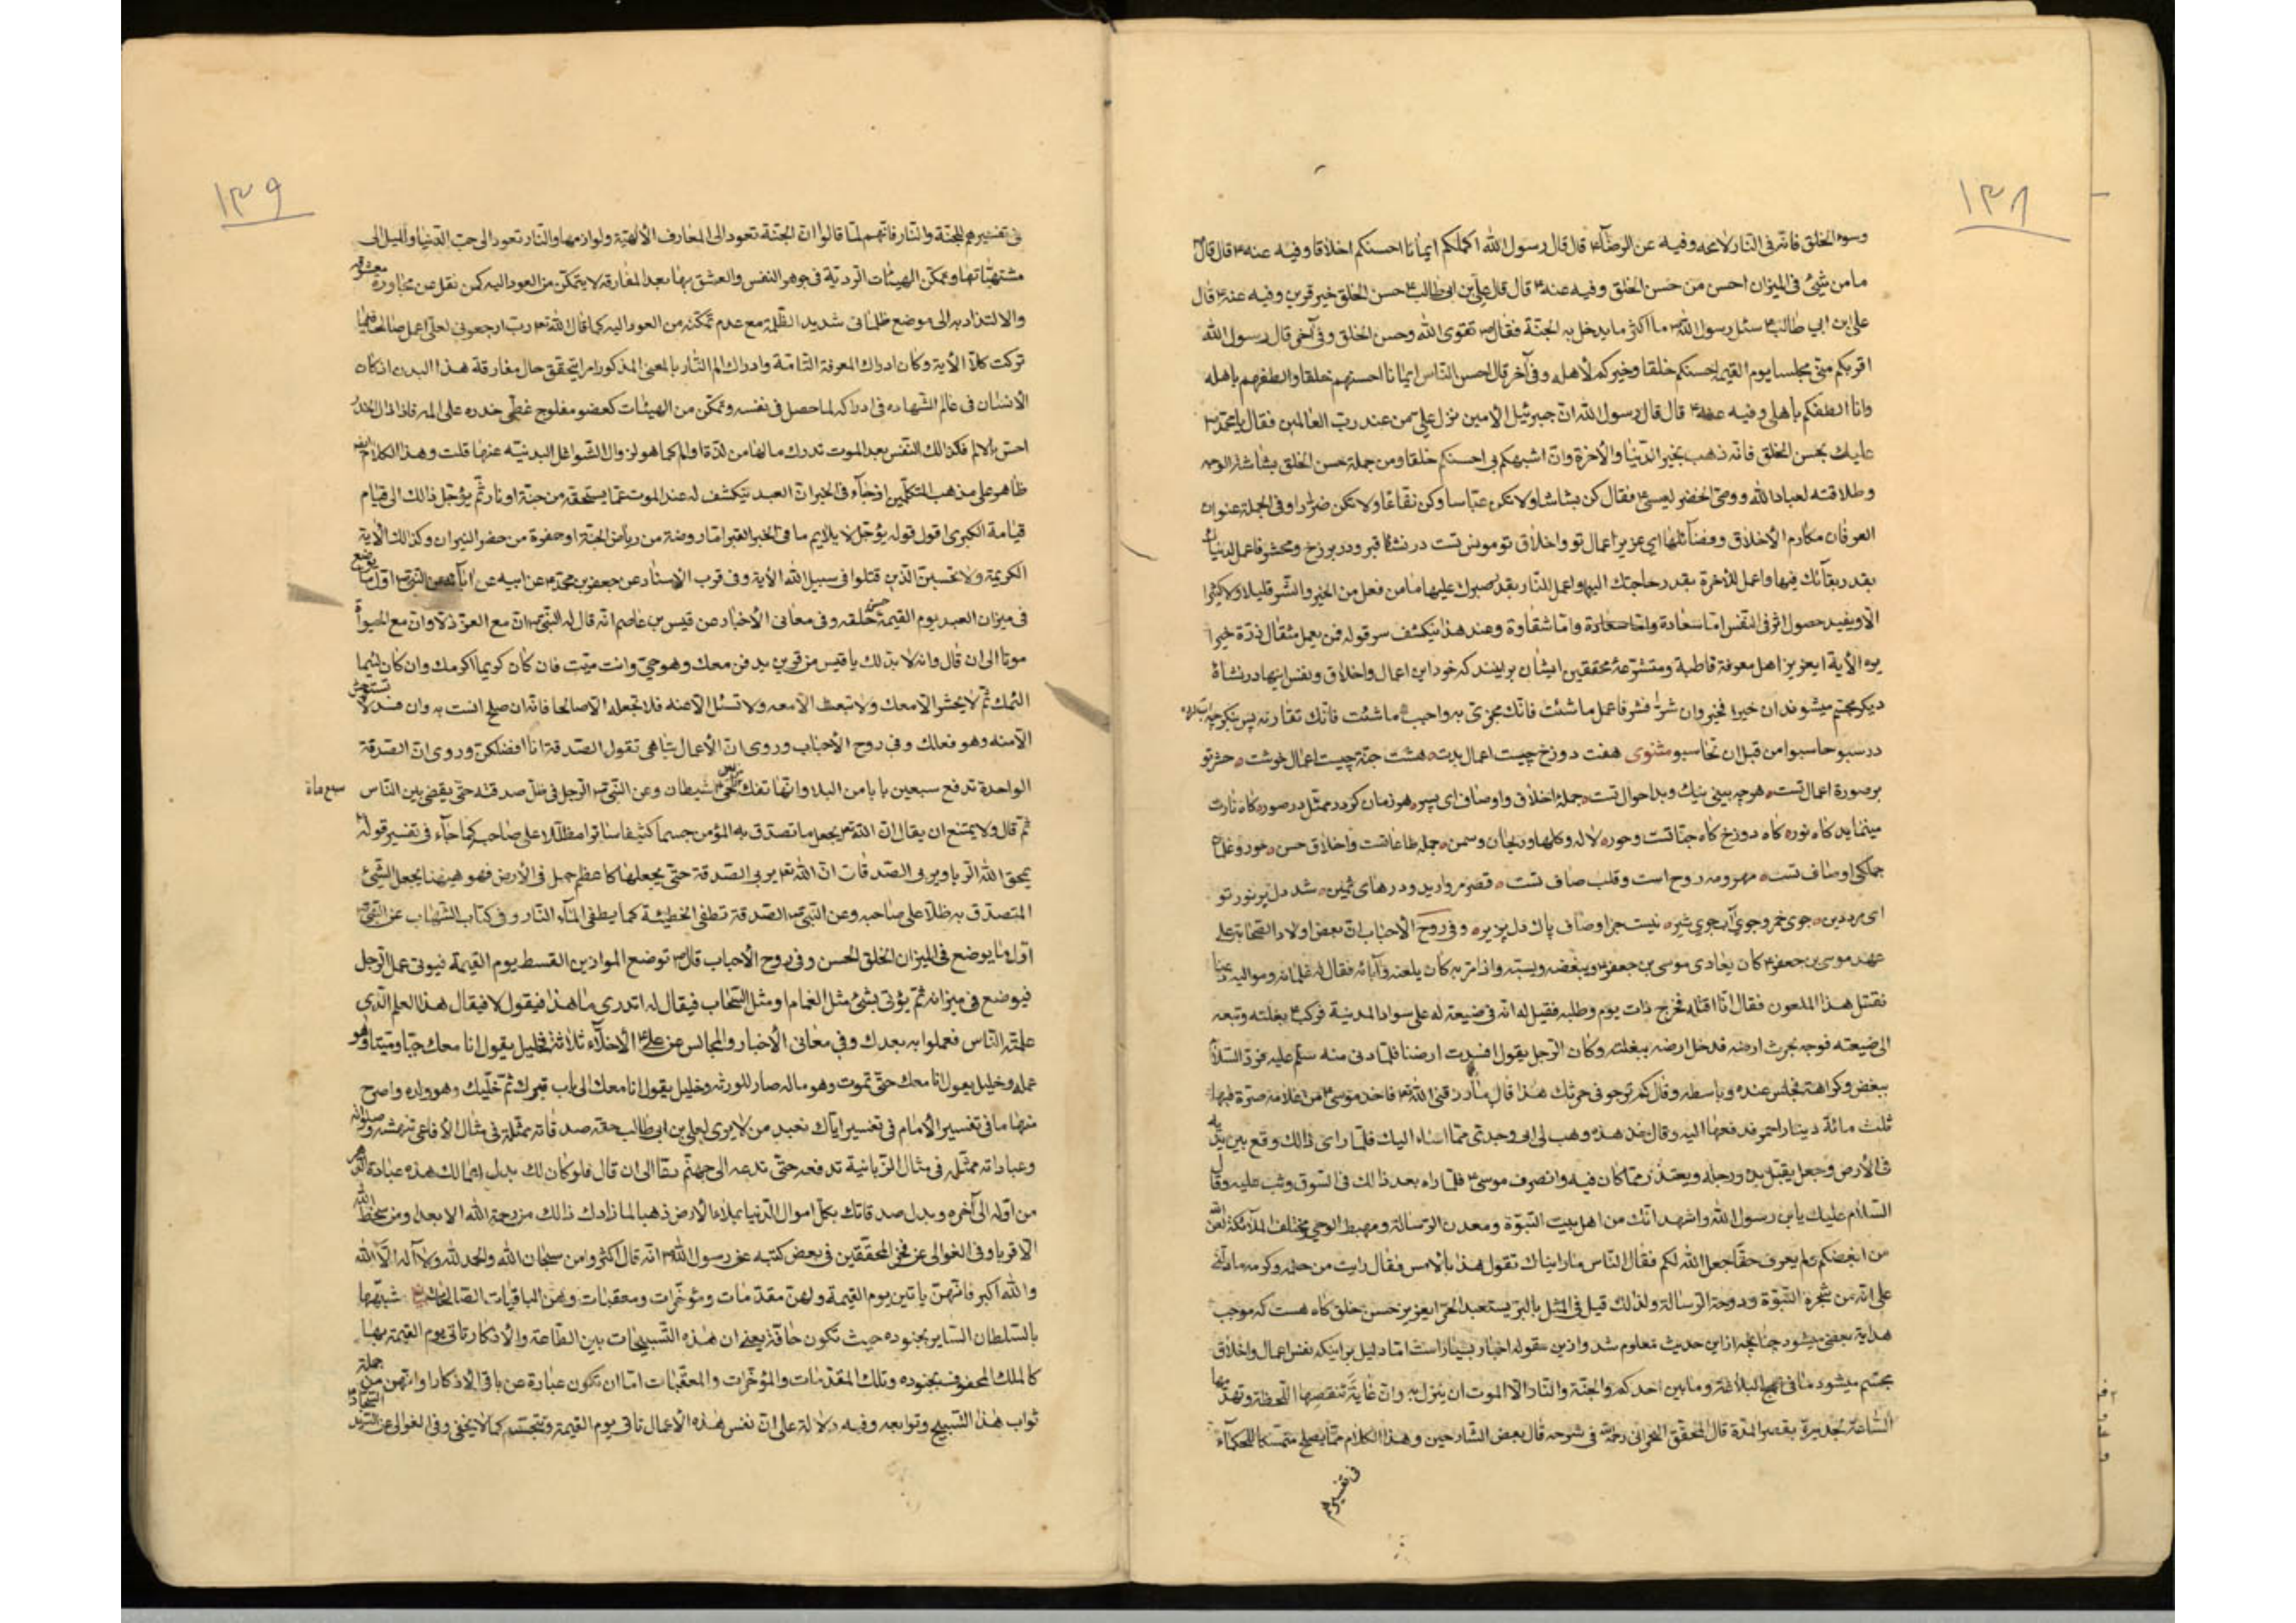 ١٣٨
وسوء الخلق فانه فى النار لا محه وفيه عن الرضا ع قال قال رسول الله اكملكم ايمانا احسنكم اخلاقا وفيه عنه ع قال قال
ما من شئ فى الميزان احسن من حسن الخلق وفيه عنه ع قال قال على بن ابى طالب ع حسن الخلق خير قرين وفيه عنه ع قال
على ابن ابي طالب ع سئل رسول الله ص ما اكثر ما يدخل به الجنة فقال ص تقوى الله وحسن الخلق وفى آخر قال رسول الله
اقربكم منى مجلسا يوم القيمة احسنكم خلقا وخيركم لأهله وفى آخر قال احسن الناس ايمانا احسنهم خلقا والطفهم باهله
وانا الطفكم باهلى وفيه عنه ع قال قال رسول الله ان جبرئيل الأمين نزل على من عند رب العالمين فقال يا محمد ص
عليك بحسن الخلق فانه ذهب بخير الدنيا والأخرة وان اشبهكم بى احسنكم خلقا ومن جملة حسن الخلق بشاشة الوجه
وطلاقته لعباد الله ووصى الخضر لعيسى ع فقال كن بشاشا ولا تكن عباسا وكن نفاعا ولا تكن ضرارا وفى الجملة عنوان
العرفان مكارم الأخلاق وفضائلها اى عزيز اعمال تو واخلاق تو مونس تست در نشئا قبر ودر برزخ ومحشر فاعمل لدنياك
بقدر بقائك فيها واعمل للأخرة بقدر حاجتك اليها واعمل للنار بقدر صبرك عليها ما من فعل من الخير والشر قليلا ولا كثيرا
الا ويفيد حصول اثر فى النفس اما سعادة واما شقاوة وعند هذا ينكشف سر قوله فمن يعمل مثقال ذرة خيرا
يره الأية ايعزيز اهل معرفة قاطبة ومتشرعة محققين ايشان برينند كه خود اين اعمال واخلاق ونفس اينها در نشاة
ديكر مجسم ميشوند ان خيرا فخير وان شرا فشر فاعمل ما شئت فانك مجزى به واحبب ما شئت فانك تفارقه پس بنكر چه
در سبو حاسبوا من قبل ان تحاسبوا مثنوى هفت دوزخ چيست اعمال بدت هشت جنة چيست اعمال خوشت حشر تو
بر صورة اعمال تست هرچه بينى نيك وبد احوال تست جملة اخلاق واوصاف اى پسر هر زمان كردد ممثل در صور كاه نارت
مينمايد كاه نور كاه دوزخ كاه جنا تست وحور لاله وكلها وريحان وسمن جمله طاعاتست واخلاق حسن حور وغلمان
جملكى اوصاف تست مهر ومه روح است وقلب صاف تست قصر مرواريد ودرهاى ثمين شد دل پر نور تو
اى مرد دين جوى خمر وجوي آب جوي شير نيست جز اوصاف پاك دل پزير وفى روح الأحباب ان بعض اولاد الصحابة على
عهد موسى بن جعفر ع كان يعادى موسى بن جعفر ع ويبغضه ويسبه واذا مر به كان يلعنه وآبائه فقال له غلمانه ومواليه دعنا
نقتل هذا الملعون فقال انا اقتله فخرج ذات يوم وطلبه فقيل له انه فى ضيعة له على سواد المدينة فركب ع بغلته وتبعه
الى ضيعته فوجه يحرث ارضه فدخل ارضه ببغلته وكان الرجل يقول افسدت ارضنا فلما دنى منه سلم عليه فرد السلام
ببغض وكراهة فجلس عنده وباسطه وقال كم ترجو فى حرثك هذا قال ما رزقنى الله تع فاخذ موسى ع من غلامه صرة فيها
ثلث مائة دينار احمر فدفعها اليه وقال خذ هذه وهب لى ابى وجدتى مما اساء اليك فلما راى ذالك وقع بين يديه
فى الأرض وجعل يقبل يده ورجله ويعتذر مما كان فيه وانصرف موسى ع فلما راه بعد ذالك فى السوق وثب عليه وقال
السلام عليك يابن رسول الله واشهد انك من اهل بيت النبوة ومعدن الرسالة ومهبط الوحى ومختلف الملائكة لعن الله
من ابغضكم ولم يعرف حقا جعل الله لكم فقال الناس ما رايناك تقول هذا بالأمس فقال رايت من حلمه وكرمه ما دلنى
على انه من شجرة النبوة ودوحة الرسالة ولذلك قيل فى المثل بالبر يستعبد الحر ايعزيز حسن خلق كاه هست كه موجب
هداية بعضى ميشود چنانچه از اين حديث معلوم شد وازين مقوله اخبار بسيار است اما دليل بر اينكه نفس اعمال واخلاق
مجسم ميشود ما فى نهج البلاغة وما بين احدكم والجنة والنار الا الموت ان ينزل به وان غاية تنقصها اللحظة وتهدمها
الساعة لجديرة بقصر المدة قال المحقق البحرانى رحمه الله فى شرحه قال بعض الشارحين وهذا الكلام مما يصلح متمسكا للحكماء
فى تفسيرهم
١٣٩
فى تفسيرهم للجنة والنار فانهم لما قالوا ان الجنة تعود الى المعارف الألهية ولوازمها والنار تعود الى حب الدنيا والميل الى
مشتهياتها وتمكن الهيئات الردية فى جوهر النفس والعشق بها بعد المفارقة لا يتمكن من العود اليه كمن نقل من مجاورة معشوقه
والالتذاذ به الى موضع ظلمانى شديد الظلمة مع عدم تمكنه من العود اليه كما قال الله تع رب ارجعونى لعلى اعمل صالحا فيما
تركت كلا الأية وكان ادراك المعرفة التامة وادراك الم النار بالمعنى المذكور امرا يتحقق حال مفارقة هذا البدن اذ كان
الأنسان فى عالم الشهاده فى ادراكه لما حصل فى نفسه وتمكن من الهيئات كعضو مفلوج غطى خدره على المه فاذا زال الخدر
احس بالالم فكذالك النفس بعد الموت تدرك ما لها من لذة او الم كما هو لزوال الشواغل البدنية عنها قلت وهذا الكلام ايضا
ظاهر على مذهب المتكلمين اذ جاء فى الخبر ان العبد ينكشف له عند الموت عما يستحقه من جنة او نار ثم يؤجل ذالك الى قيام
قيامة الكبرى اقول قوله يؤجل لا يلايم ما فى الخبر القبر اما روضة من رياض الجنة او حفرة من حفر النيران وكذالك الأية
الكريمة ولا تحسبن الذين قتلوا فى سبيل الله الأية وفى قرب الاسناد عن جعفر بن محمد ع عن ابيه عن آبائه عن النبى ص اول ما يوضع
فى ميزان العبد يوم القيمة حسن خلقه وفى معانى الأخبار عن قيس بن عاصم انه قال له النبى ص ان مع العز ذلا وان مع الحيوة
موتا الى ان قال وانه لا بد لك يا قيس من قرين يدفن معك وهو حى وانت ميت فان كان كريما اكرمك وان كان لئيما
الئمك ثم لا يحشر الا معك ولا تبعث الا معه ولا تسئل الا عنه فلا تجعله الا صالحا فانه ان صلح انست به وان فسد لا تستوحش
الا منه وهو فعلك وفى روح الأحباب وروى ان الأعمال يتباهى تقول الصدقة انا افضلكن وروى ان الصدقة
الواحدة تدفع سبعين بابا من البلاء وانها تفك من لحى شيطان وعن النبى ص الرجل فى ظل صدقته حتى يقضى بين الناس
سبع ماة
ثم قال ولا يمتنع ان يقال ان الله تع يجعل ما تصدق به المؤمن جسما كثيفا ساترا مظللا على صاحبه كما جاء فى تفسير قوله تع
يمحق الله الربا ويربى الصدقات ان الله تع يربى الصدقة حتى يجعلها كاعظم جبل فى الأرض فهو هيهنا يجعل الشئ
المتصدق به ظلا على صاحبه وعن النبى ص الصدقة تطفى الخطيئة كما يطفى الماء النار وفى كتاب الشهاب عن النبى ص
اول ما يوضع فى الميزان الخلق الحسن وفى روح الأحباب قال ص توضع الموازين القسط يوم القيمة فيوتى عمل الرجل
فيوضع فى ميزانه ثم يؤتى بشئ مثل الغمام ومثل السحاب فيقال له اتدرى ما هذا فيقول لا فيقال هذا العلم الذى
علمته الناس فعملوا به بعدك وفى معانى الأخبار والمجالس عن على ع الأخلاء ثلاثة فخليل يقول انا معك حيا وميتا وهو
عمله وخليل يقول انا معك حتى تموت وهو ماله صار للورثه وخليل يقول انا معك الى باب قبرك ثم خليك وهو ولده واصرح
منها ما فى تفسير الأمام فى تفسير اياك نعبد من لا يرى لعلى بن ابى طالب حقه صدقاته ممثلة فى مثال الأفاعى تنهشه وصلواته
وعباداته ممثلة فى مثال الزبانية تدفعه حتى تدعه الى جهنم دعا الى ان قال فلو كان لك بدل اعمالك هذه عبادة الدهر
من اوله الى آخره وبدل صدقاتك بكل اموال الدنيا بملاء الأرض ذهبا لما زادك ذالك من رحمة الله الا بعدا ومن سخط الله
الا قربا وفى الغوالى عن فخر المحققين فى بعض كتبه عن رسول الله ص انه قال اكثروا من سبحان الله والحمد لله ولا اله الا الله
والله اكبر فانهن ياتين يوم القيمة ولهن مقدمات ومؤخرات ومعقبات وهن الباقيات الصالحات شبهها
بالسلطان الساير بجنوده حيث تكون حافة يعنى ان هذه التسبيحات بين الطاعة والأذكار تاتى يوم القيمة بها
كالملك المحفوف بجنوده وتلك المقدمات والمؤخرات والمعقبات اما ان تكون عبارة عن باقى الاذكار وانهن من جملة
ثواب هذا التسبيح وتوابعه وفيه دلالة على ان نفس هذه الاعمال تاتى يوم القيمة وتتجسم كما لا يخفى وفى الغوالى عن